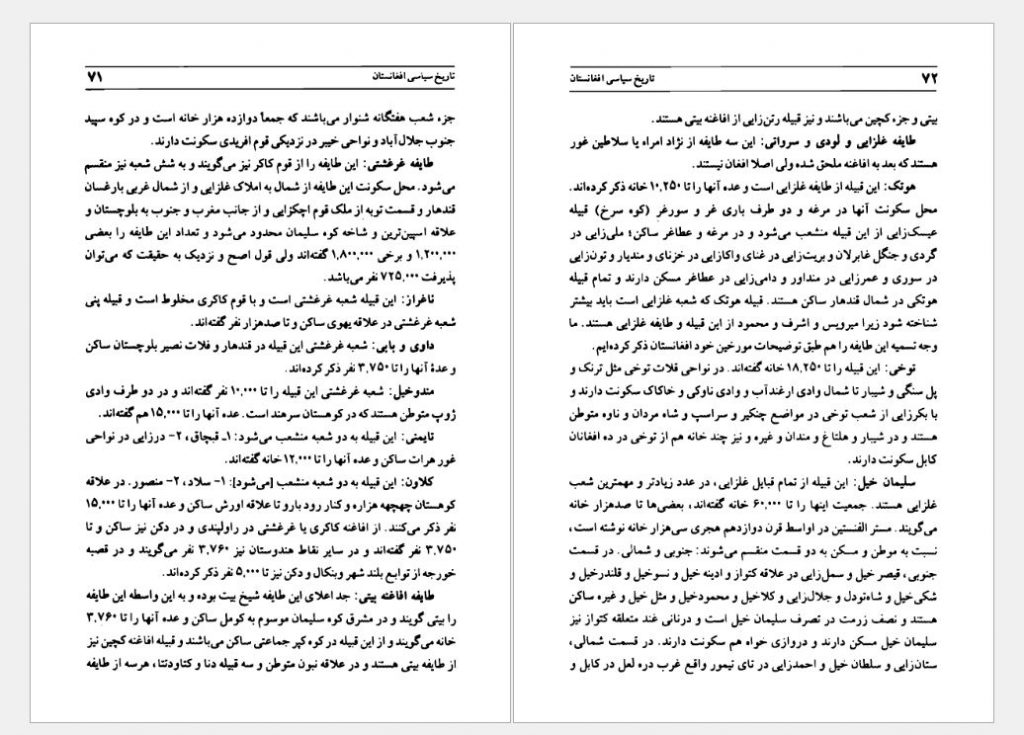 تاریخ سیاسی افغانستان ۷۱
جزء شعب هفتگانه شنوار می‌باشند که جمعاً دوازده هزار خانه است و در کوه سپید
جنوب جلال‌آباد و نواحی خیبر در نزدیکی قوم افریدی سکونت دارند.
طایفه غرغشتی: این طایفه را از قوم کاکر نیز می‌گویند و به شش شعبه نیز منقسم
می‌شود. محل سکونت این طایفه از شمال به املاک غلزایی و از شمال غربی بارغسان
قندهار و قسمت توبه از ملک قوم اچکزایی و از جانب مغرب و جنوب به بلوچستان و
علاقه اسپین‌ترین و شاخه کوه سلیمان محدود می‌شود و تعداد این طایفه را بعضی
۱,۲۰۰,۰۰۰ و برخی ۱,۸۰۰,۰۰۰ گفته‌اند ولی قول اصح و نزدیک به حقیقت که می‌توان
پذیرفت ۷۲۵,۰۰۰ نفر می‌باشد.
ناغراز: این قبیله شعبه غرغشتی است و با قوم کاکری مخلوط است و قبیله پنی
شعبه غرغشتی در علاقه یهوی ساکن و تا صدهزار نفر گفته‌اند.
داوی و بابی: شعبه غرغشتی این قبیله در قندهار و فلات نصیر بلوچستان ساکن
و عدهٔ آنها را تا ۳,۷۵۰ نفر ذکر کرده‌اند.
مندوخیل: شعبه غرغشتی این قبیله را تا ۱۰,۰۰۰ نفر گفته‌اند و در دو طرف وادی
ژوپ متوطن هستند که در کوهستان سرهند است. عده آنها را تا ۱۵,۰۰۰ هم گفته‌اند.
تایمنی: این قبیله به دو شعبه منشعب می‌شود: ۱ـ قبچاق، ۲- درزایی در نواحی
غور هرات ساکن و عده آنها را تا ۱۲,۰۰۰ خانه گفته‌اند.
کلاون: این قبیله به دو شعبه منشعب [می‌شود]: ۱- سلاد، ۲- منصور. در علاقه
کوهستان چهچهه هزاره و کنار رود بارو تا علاقه اورش ساکن و عده آنها را تا ۱۵,۰۰۰
نفر ذکر می‌کنند. از افاغنه کاکری یا غرغشتی در راولپندی و در دکن نیز ساکن و تا
۳,۷۵۰ نفر گفته‌اند و در سایر نقاط هندوستان نیز ۳,۷۶۰ نفر می‌گویند و در قصبه
خورجه از توابع بلند شهر وبنکال و دکن نیز تا ۵,۰۰۰ نفر ذکر کرده‌اند.
طایفه افاغنه بیتی: جد اعلای این طایفه شیخ بیت بوده و به این واسطه این طایفه
را بیتی گویند و در مشرق کوه سلیمان موسوم به کومل ساکن و عده آنها را تا ۳,۷۶۰
خانه می‌گویند و از این قبیله در کوه کپر جماعتی ساکن می‌باشند و قبیله افاغنه کچین نیز
از طایفه بیتی هستند و در علاقه نبون متوطن و سه قبیله دنا و کتاودتتا، هرسه از طایفه
تاریخ سیاسی افغانستان ۷۲
بیتی و جزء کچین می‌باشند و نیز قبیله رتن‌زایی از افاغنه بیتی هستند.
طایفه غلزایی و لودی و سرواتی: این سه طایفه از نژاد امراء یا سلاطین غور
هستند که بعد به افاغنه ملحق شده ولی اصلا افغان نیستند.
هوتک: این قبیله از طایفه غلزایی است و عده آنها را تا ۱۰,۲۵۰ خانه ذکر کرده‌اند.
محل سکونت آنها در مرغه و دو طرف باری غر و سورغر (کوه سرخ) قبیله
عیسک‌زایی از این قبیله منشعب می‌شود و در مرغه و عطاغر ساکن؛ ملی‌زایی در
گردی و جنگل غابرلان و بریت‌زایی در غنای واکازایی در خزنای و مندیار و تون‌زایی
در سوری و عمرزایی در منداور و دامی‌زایی در عطاغر مسکن دارند و تمام قبیله
هوتکی در شمال قندهار ساکن هستند. قبیله هوتک که شعبه غلزایی است باید بیشتر
شناخته شود زیرا میرویس و اشرف و محمود از این قبیله و طایفه غلزایی هستند. ما
وجه تسمیه این طایفه را هم طبق توضیحات مورخین خود افغانستان ذکر کرده‌ایم.
توخی: این قبیله را تا ۱۸,۲۵۰ خانه گفته‌اند. در نواحی قلات توخی مثل ترنک و
پل سنگی و شیبار تا شمال وادی ارغندآب و وادی ناوکی و خاکاک سکونت دارند و
با بکرزایی از شعب توخی در مواضع چنکیر و سراسپ و شاه مردان و ناوه متوطن
هستند و در شیبار و هلتاغ و مندان و غیره و نیز چند خانه هم از توخی در ده افغانان
کابل سکونت دارند.
سلیمان خیل: این قبیله از تمام قبایل غلزایی، در عدد زیادتر و مهمترین شعب
غلزایی هستند. جمعیت اینها را تا ۶۰,۰۰۰ خانه گفته‌اند، بعضی‌ها تا صدهزار خانه
می‌گویند. مستر الفنستین در اواسط قرن دوازدهم هجری سی‌هزار خانه نوشته است،
نسبت به موطن و مسکن به دو قسمت منقسم می‌شوند: جنوبی و شمالی. در قسمت
جنوبی، قیصر خیل و سمل‌زایی در علاقه کتواز و ادینه خیل و نسوخیل و قلندرخیل و
شکی‌خیل و شاه‌تودل و جلال‌زایی و کلاخیل و محمودخیل و مثل خیل و غیره ساکن
هستند و نصف زرمت در تصرف سلیمان خیل است و درنانی غند متعلقه کتواز نیز
سلیمان خیل مسکن دارند و دروازی خواه هم سکونت دارند. در قسمت شمالی،
ستان‌زایی و سلطان خیل و احمدزایی در تای تیمور واقع غرب دره لعل در کابل و